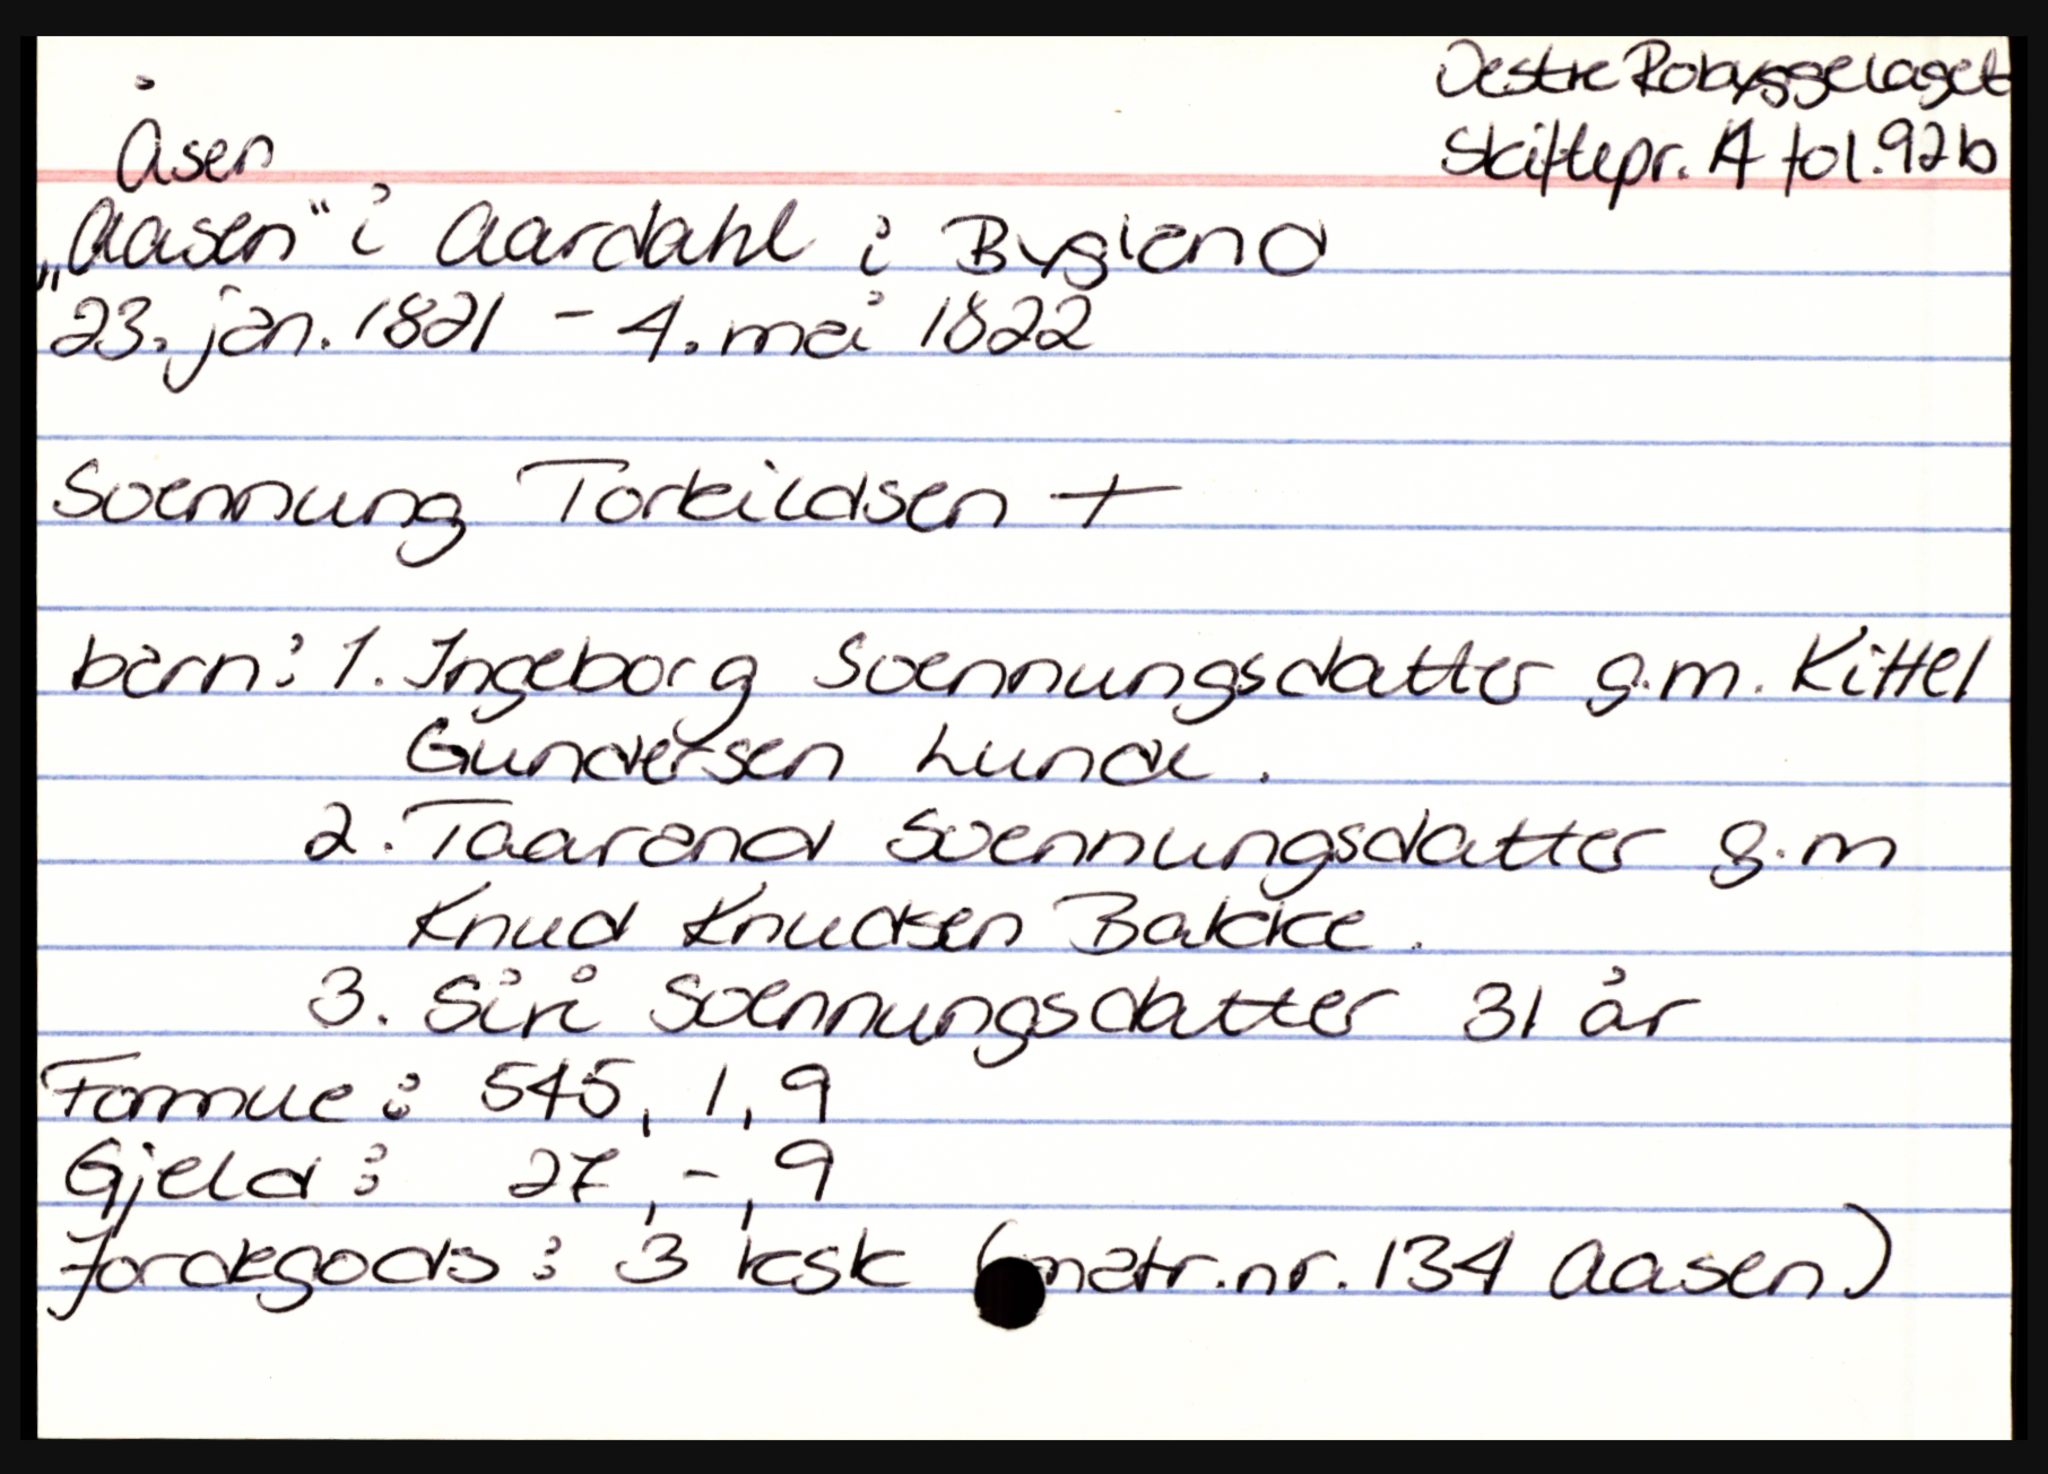 Vestre Robyggelaget
Åsen
Skiftepr. A fol. 92b
„Aasen“ i Aardahl i Bygland
23. jan. 1821 - 4. mai 1822
Svennung Torkildsen +
barn: 1. Ingeborg Svennungsdatter g.m. Kittel
Gundersen Lunde.
2. Taarand Svennungsdatter g.m
Knud Knudsen Bakke.
3. Siri Svennungsdatter 31 år
Formue: 545, 1, 9
Gjeld: 27, -, 9
Jordegods: 3 ksk (matr.nr. 134 Aasen)